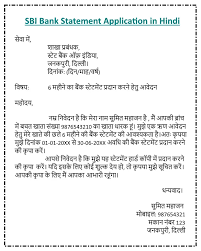 SBI Bank Statement Application in Hindi
सेवा में,
शाखा प्रबंधक,
स्टेट बैंक ऑफ़ इंडिया,
जनकपुरी, दिल्ली।
दिनांक: (दिन/माह/वर्ष)
विषय: 6 महीने का बैंक स्टेटमेंट प्रदान करने हेतु आवेदन
महोदय,
नम्र निवेदन है कि मेरा नाम सुमित महाजन है, मैं आपकी ब्रांच
में बचत खाता संख्या 9876543210 का खाता धारक हूं। मुझे एक ऋण आवेदन
हेतु मेरे खाते की छले 6 महीने की बैंक स्टेटमेंट की आवश्यकता है।अतः कृपया
मुझे दिनांक 01-01-20XX से 30-06-20XX अवधि की बैंक स्टेटमेंट प्रदान करने
की कृपा करें।
आपसे निवेदन है कि मुझे यह स्टेटमेंट हार्ड कॉपी में प्रदान करने
की कृपा करें। यदि इसके लिए कोई शुल्क देय हो, तो कृपया मुझे सूचित करें।
आपकी कृपा के लिए मैं आपका आभारी रहूंगा।
धन्यवाद।
सुमित महाजन
मोबाइल: 987654321
मकान नंबर 123
जनकपुरी, दिल्ली